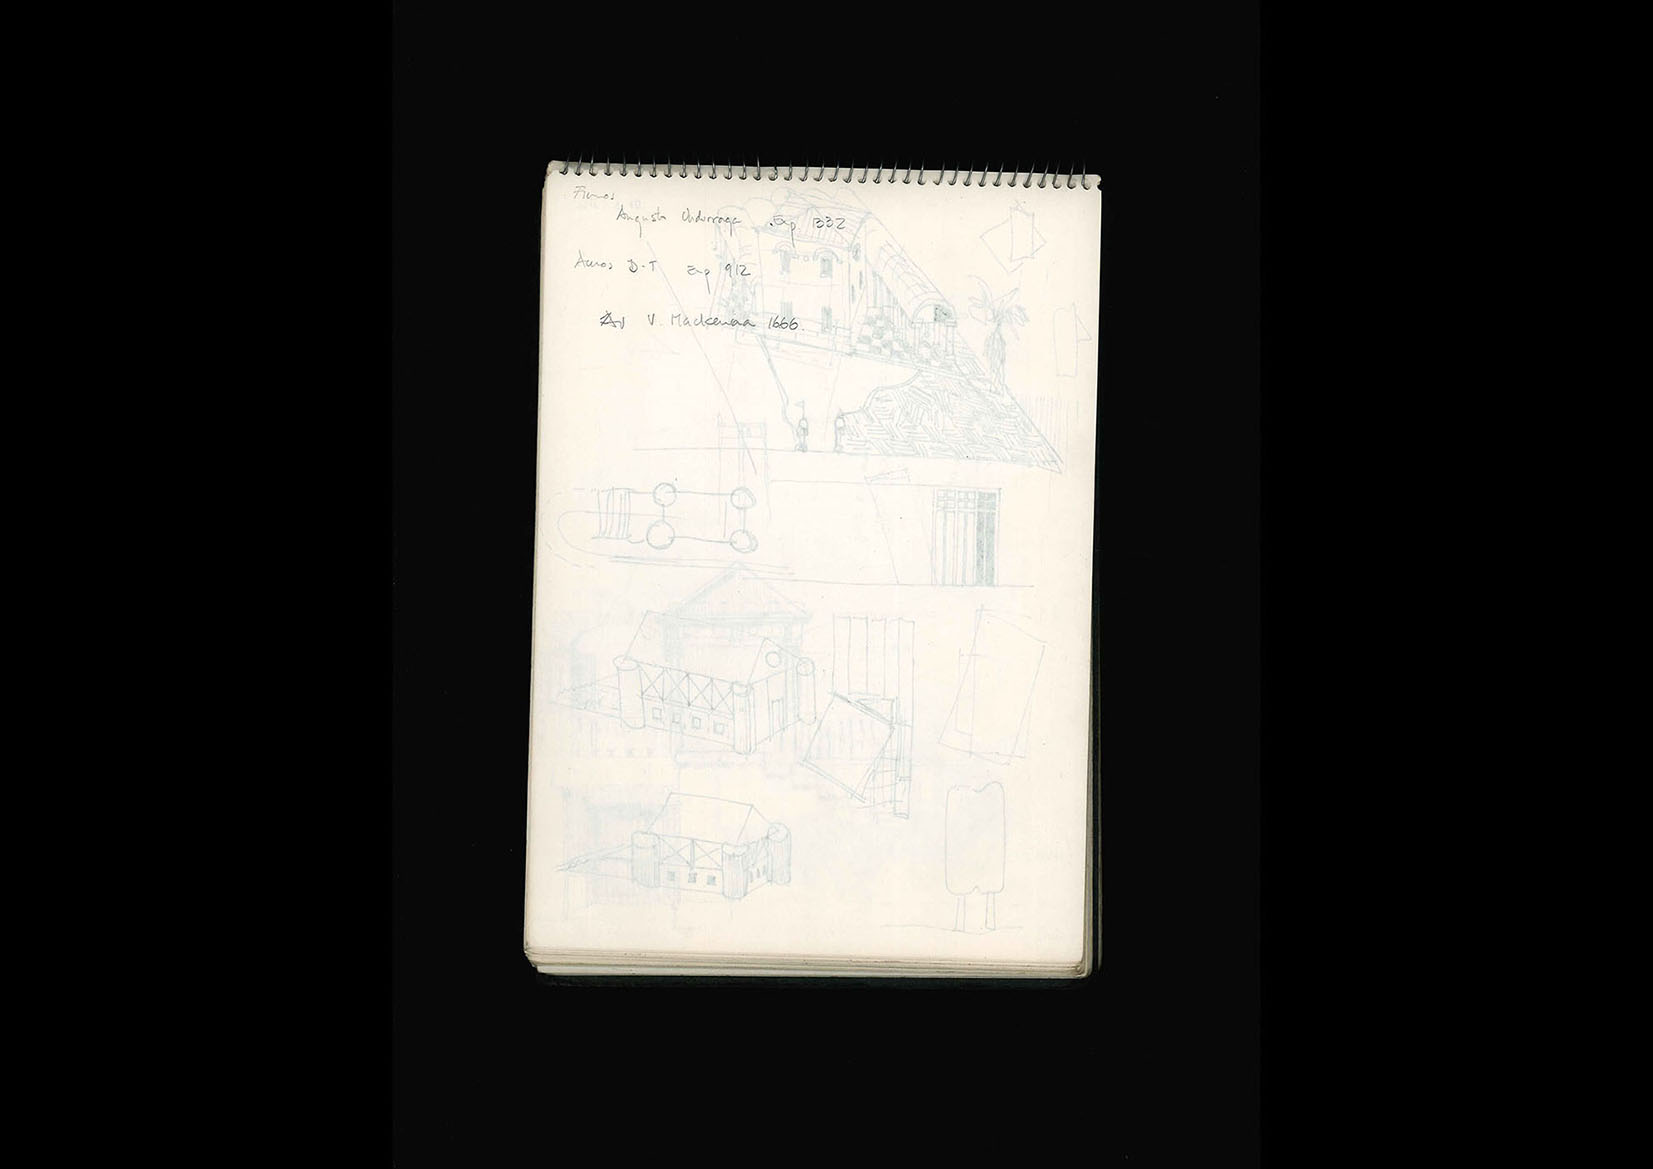 Fierros
Augusto Undurraga Exp 1332
Aceros D.T Exp 912
Av V. Mackenna 1666.